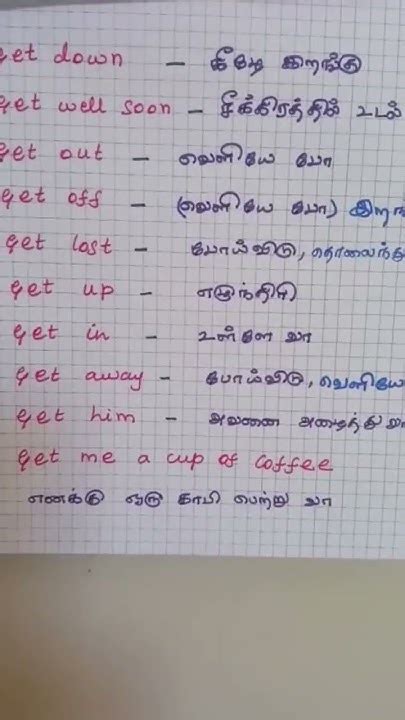 get down - கீழே இறங்கு
get well soon - சீக்கிரத்தில் உடல்
get out - வெளியே போ
get off - (வெளியே போ)
get lost - போய்விடு,
get up - எழுந்திரி
get in - உள்ளே வா
get away - போய்விடு, வெளியே
get him - அவனை அழைத்து
get me a cup of coffee
எனக்கு ஒரு காபி பெற்று வா